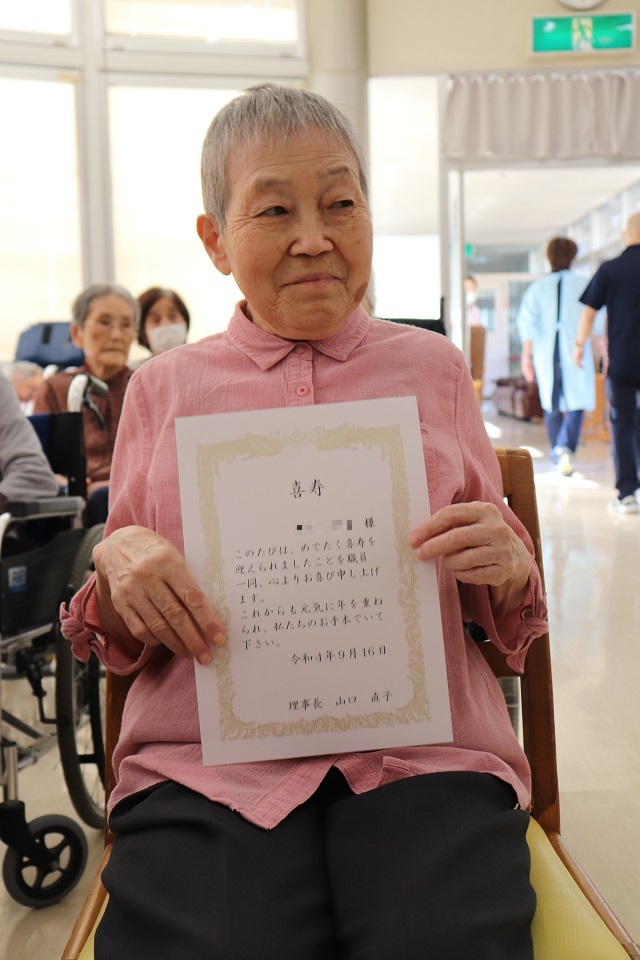 喜寿
様
このたびは、めでたく喜寿を
迎えられましたことを職員
一同、心よりお喜び申し上げ
ます。
これからも元気に年を重ね
られ、私たちのお手本でいて
下さい。
令和4年9月16日
理事長 山口 直子